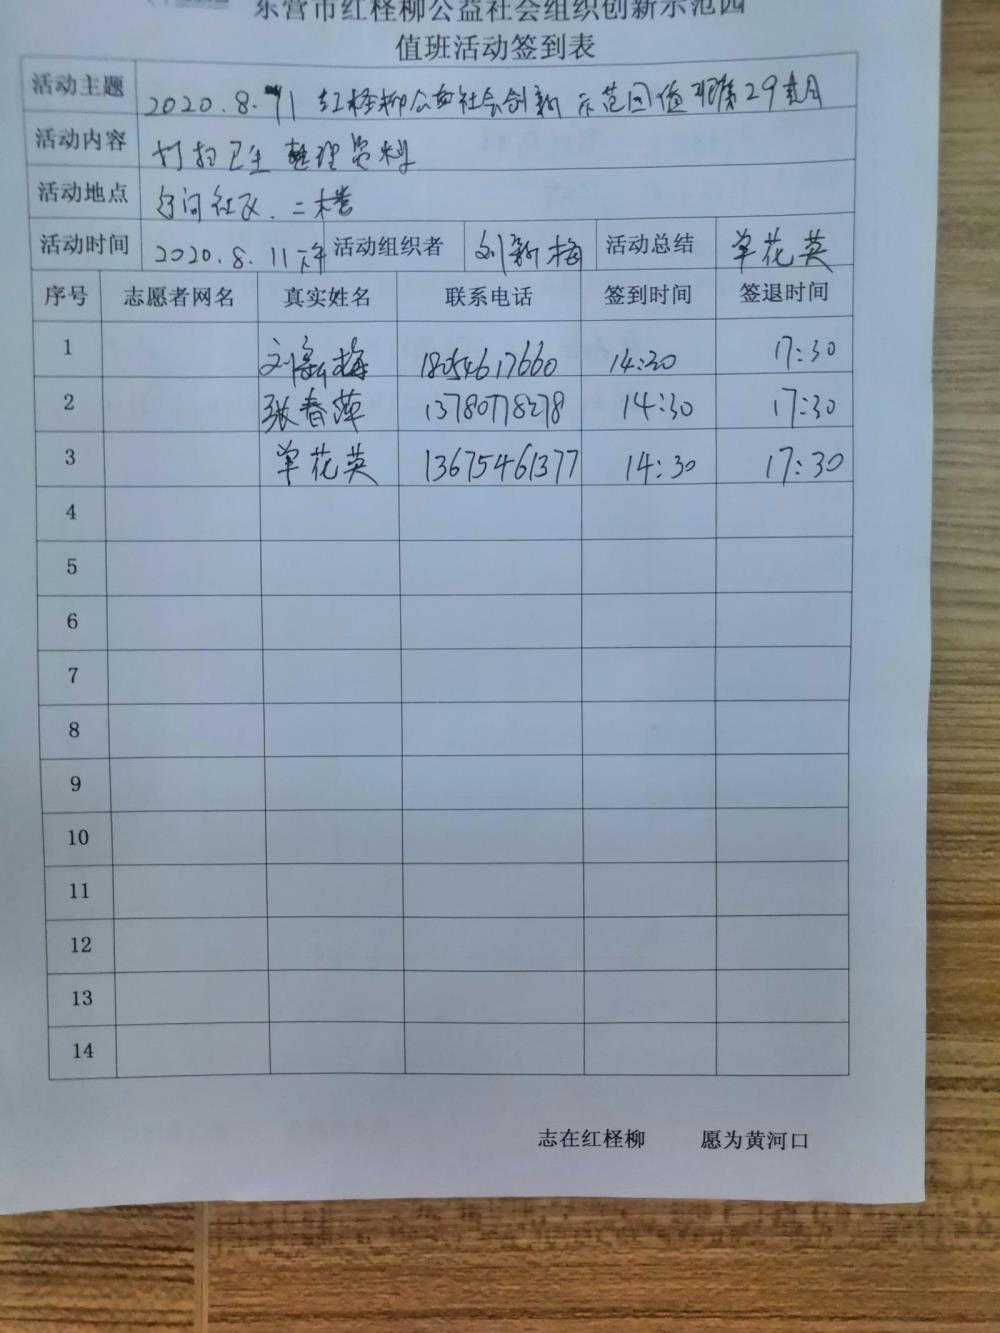 东营市红柽柳公益社会组织创新示范园
值班活动签到表
活动主题 2020.8.11 红柽柳公益社会创新示范园值班第29期
活动内容 打扫卫生 整理资料
活动地点 社区.二楼
活动时间 2020.8.11下午 活动组织者 刘新梅 活动总结 单花英
序号 志愿者网名 真实姓名 联系电话 签到时间 签退时间
1 刘新梅 18054617660 14:30 17:30
2 张春萍 13780778278 14:30 17:30
3 单花英 13675461377 14:30 17:30
4
5
6
7
8
9
10
11
12
13
14
志在红柽柳 愿为黄河口